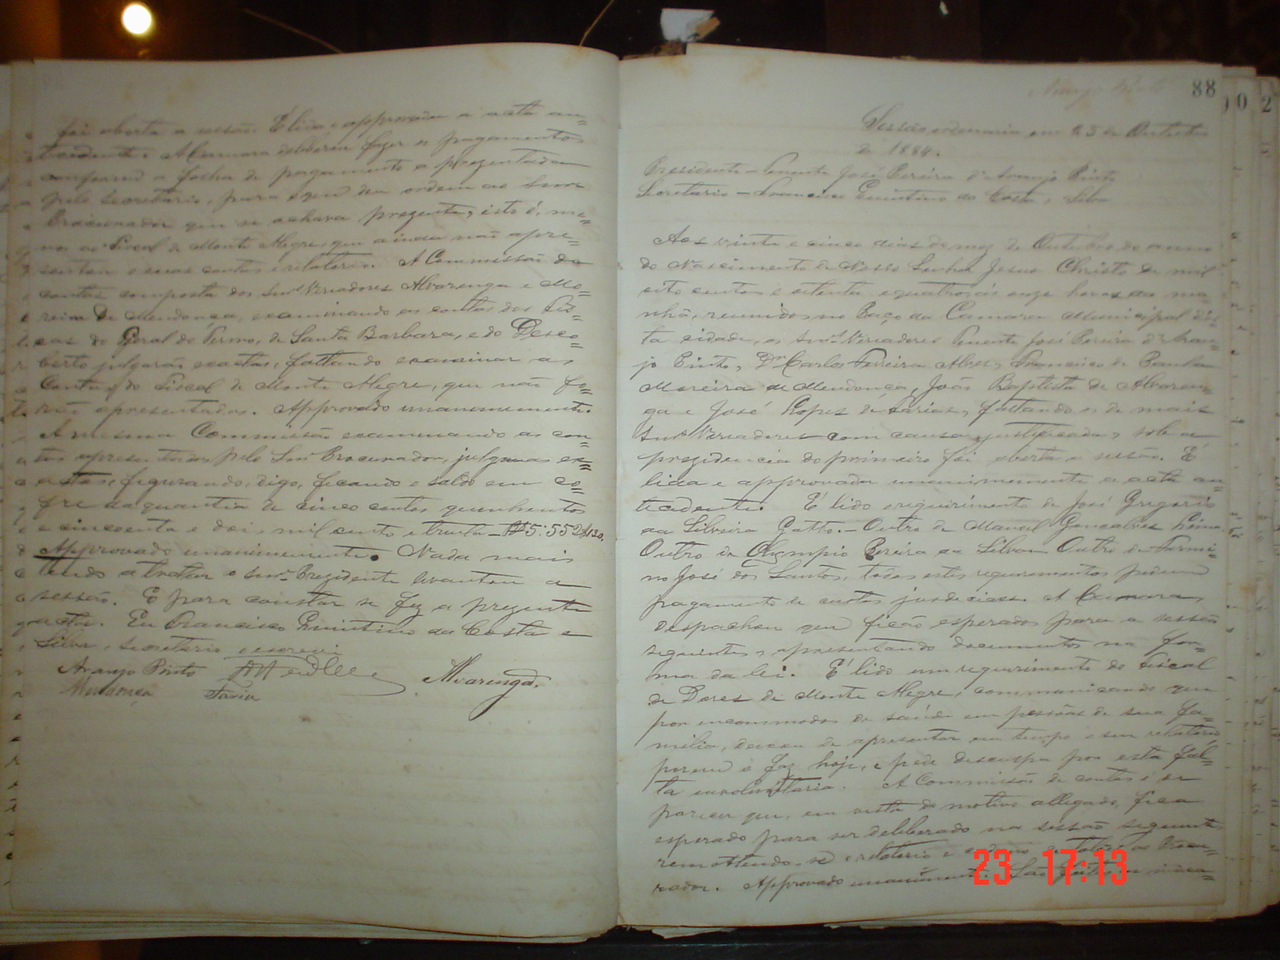 foi aberta a sessão. É lida e approvada a acta an-
tecedente. A Camara deliberou fazer os pagamentos
conforme a folha de pagamento apresentada
pelo Secretario, para o que deu ordem ao Snr
Procurador que se achava prezente, isto é, me-
nos ao Fiscal de Monte Alegre, que ainda não apre-
sentou suas contas e relatorio. A Commissão de
contas composta dos Snrs Vereadores Alvarenga e Mo-
reira de Mendonça, examinando as contas dos Fis-
caes do Geral do Termo, de Santa Barbara, e do Desco-
berto julgarão exactas, faltando examinar as
Contas do Fiscal de Monte Alegre, que não fo-
rão apresentadas. Approvado unanimemente.
A mesma Commissão examinando as con-
tas apresentadas pelo Snr Procurador, julgou as ex-
actas, figurando, digo, ficando o saldo em co-
fre da quantia de cinco contos quinhentos
e cincoenta e dois mil cento e trinta 5:552$130.
Approvado unanimemente. Nada mais
tendo a tratar o Snr. Prezidente levantou a
sessão. E para constar se fez a prezente
acta. Eu Francisco Quintino da Costa e
Silva, secretario escrevi
Araujo Pinto Alvarenga
Mendonça Faria
Araujo Pinto
88
0 2
Sessão ordenaria em 25 de Outubro
de 1884.
Presidente - Tenente José Pereira d'Araujo Pinto
Secretario - Francisco Quintino da Costa e Silva
Aos vinte e cinco dias do mez de Outubro do anno
do Nascimento de Nosso Senhor Jesus Christo de mil
oito centos e oitenta e quatro, as onze horas da ma-
nhã, reunidos no Paço da Camara Municipal des-
ta cidade, os Snrs Vereadores Tenente José Pereira d'Arau-
jo Pinto, Dr Carlos Ferreira Alves, Francisco de Paula
Moreira de Mendonça, João Baptista de Alvaren-
ga e José Lopes de Faria, faltando os de mais
Snrs Vereadores com causa justificada, sob a
prezidencia do primeiro foi aberta a sessão. É
lida e approvada unanimemente a acta an-
tecedente. É lido requirimento de José Gregorio
da Silveira Gatto. - Outro de Manoel Gonçalves Lima
Outro de Olympio Pereira da Silva Outro de Firmi-
no José dos Santos, todos estes requerimentos pedem
pagamento de custas judiciaes. A Camara
despachou que ficão esperados para a sessão
seguinte, apresentando documentos na for-
ma da lei. É lido um requerimento do Fiscal
de Dores de Monte Alegre, communicando que
por encommodos de saude em pessôas de sua fa-
milia, deixou de apresentar em tempo o seu relatorio
porem o faz hoje, e pede desculpa por esta fal-
ta involuntaria. A Commissão de contas é de
parecer que, em vista do motivo allegado, fica
esperado para ser deliberado na sessão seguinte
remettendo-se o relatorio e ao Procu-
rador. Approvado unanimemente. São
23 17:13